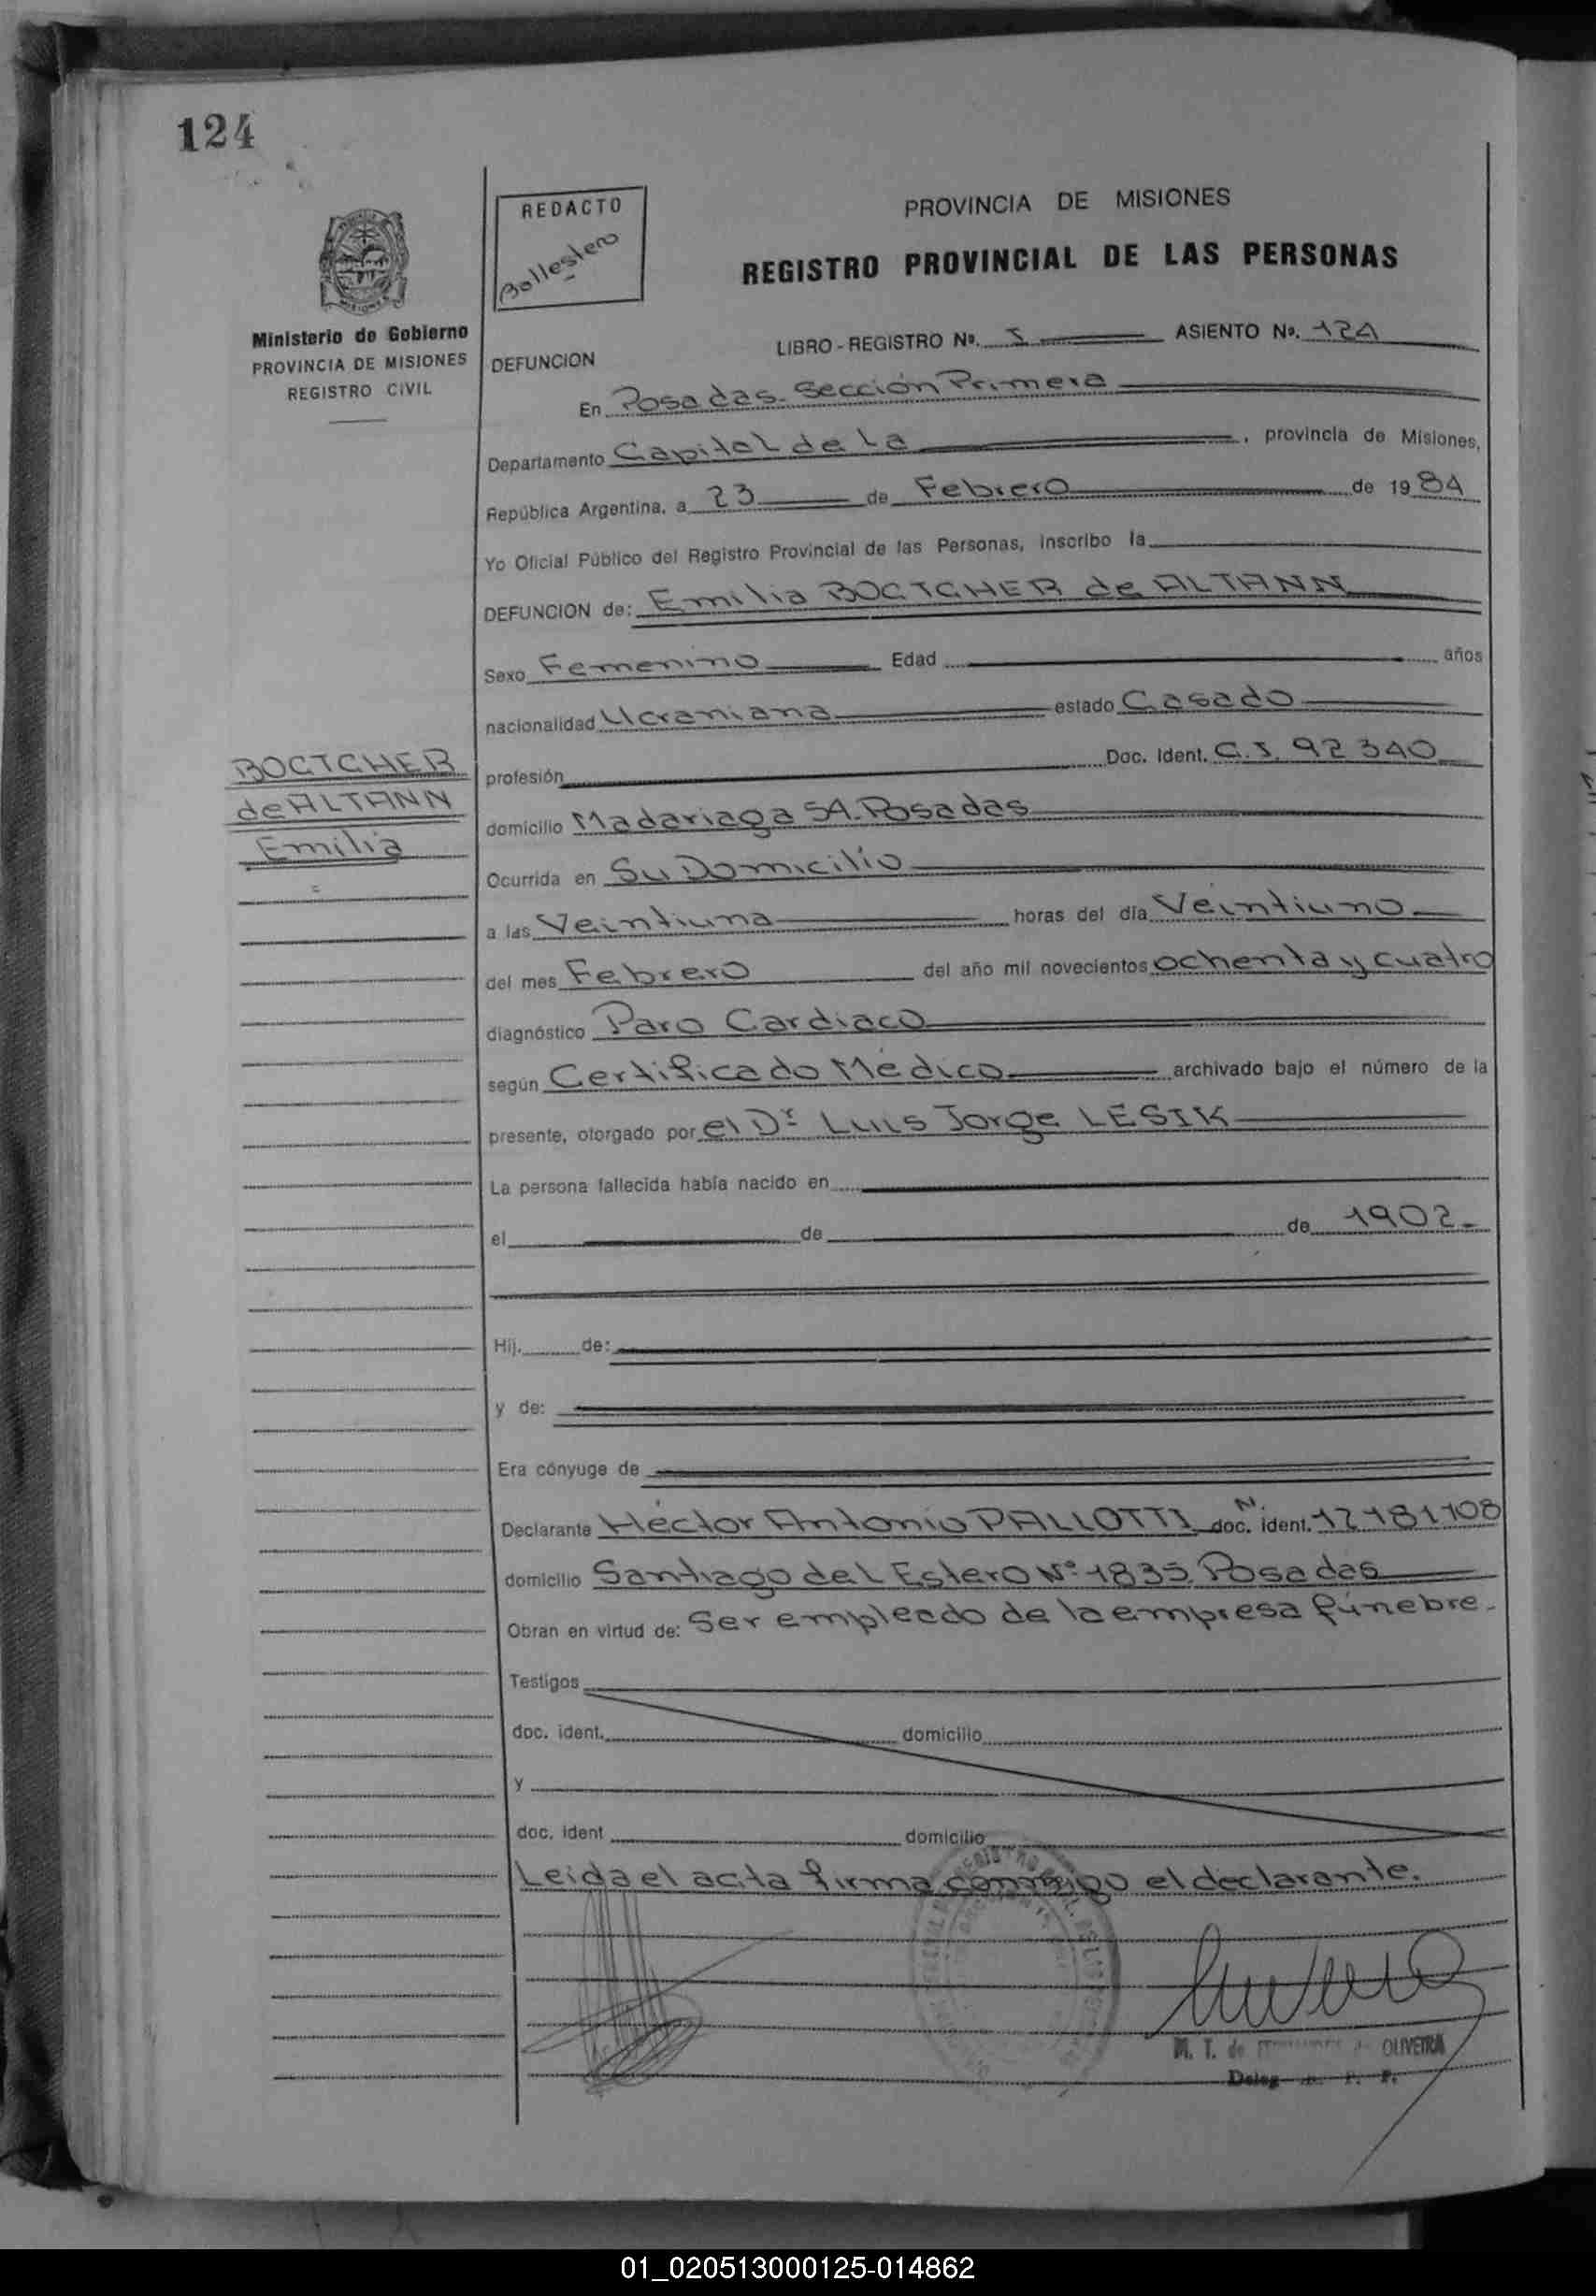 124
REDACTO
Ballestero
PROVINCIA DE MISIONES
REGISTRO PROVINCIAL DE LAS PERSONAS
Ministerio de Gobierno
PROVINCIA DE MISIONES
REGISTRO CIVIL
LIBRO - REGISTRO Nº. I ASIENTO Nº. 124
DEFUNCION
En Posadas. Sección Primera
Departamento Capital de La , provincia de Misiones,
República Argentina, a 23 de Febrero de 1984
Yo Oficial Público del Registro Provincial de las Personas, inscribo la
DEFUNCION de: Emilia BOCTCHER de ALTANN
Sexo Femenino Edad años
nacionalidad Ucraniana estado Casado
BOCTCHER
de ALTANN
Emilia
profesión Doc. Ident. C.I. 92 340
domicilio Madariaga 54. Posadas
Ocurrida en Su Domicilio
a las Veintiuna horas del día Veintiuno
del mes Febrero del año mil novecientos ochenta y cuatro
diagnóstico Paro Cardiaco
según Certificado Médico archivado bajo el número de la
presente, otorgado por el Dr Luis Jorge LESIK
La persona fallecida había nacido en
el de de 1902-
Hij. de:
y de:
Era cónyuge de
Declarante Héctor Antonio PALLOTTI doc. N. ident. 12181108
domicilio Santiago del Estero Nº 1835 Posadas
Obran en virtud de: Ser empleado de la empresa fúnebre-
Testigos
doc. ident. domicilio
y
doc. ident domicilio
Leida el acta firma conmigo el declarante.
M. T. de OLIVEIRA
Deleg
01_020513000125-014862